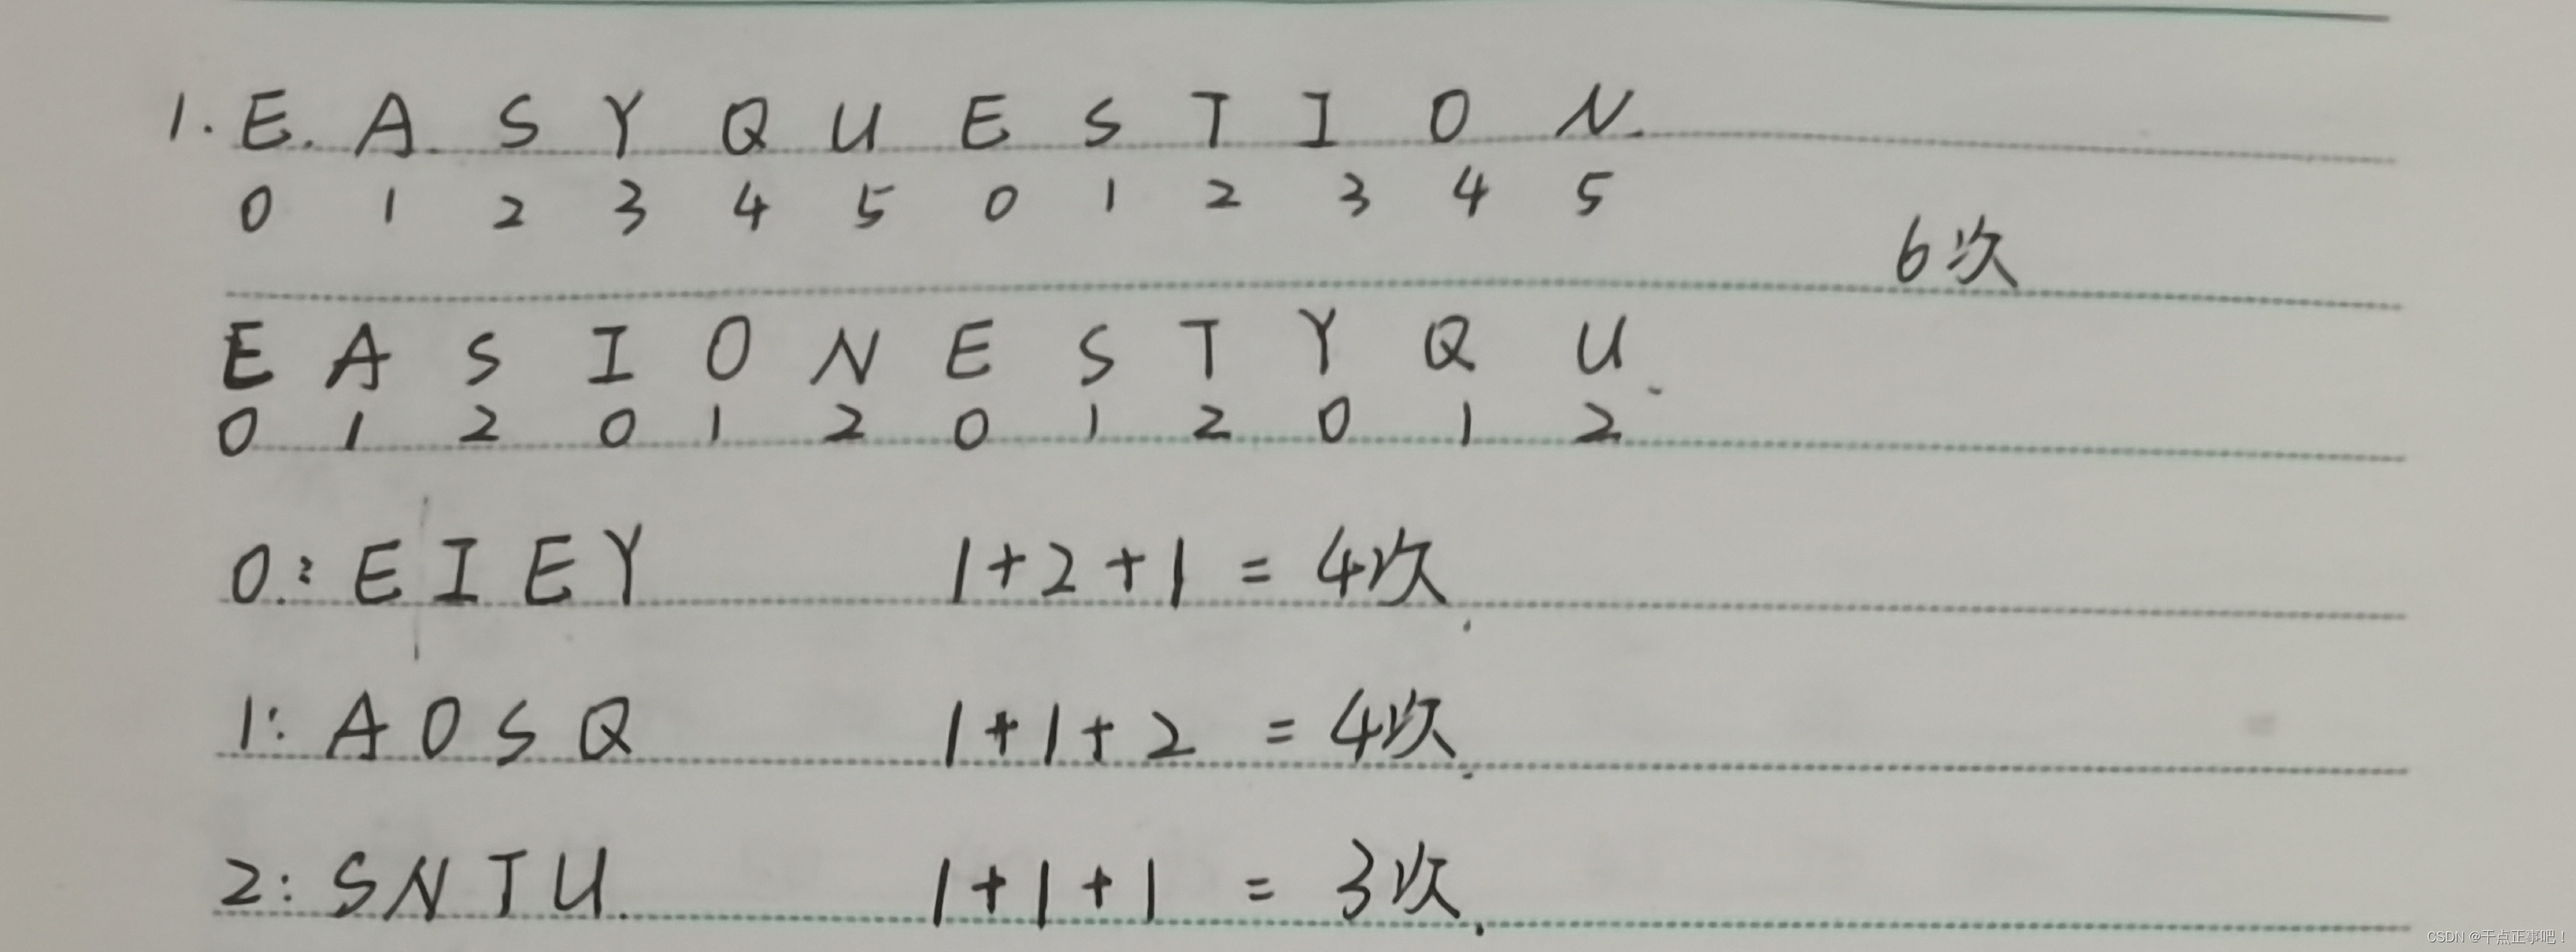 1. E. A. S Y Q U E S T I O N.
0 1 2 3 4 5 0 1 2 3 4 5
6次
E A S I O N E S T Y Q U.
0 1 2 0 1 2 0 1 2 0 1 2
0: E I E Y 1+2+1 = 4次.
1: A O S Q 1+1+2 = 4次.
2: S N T U. 1+1+1 = 3次.
CSDN @干点正事吧！